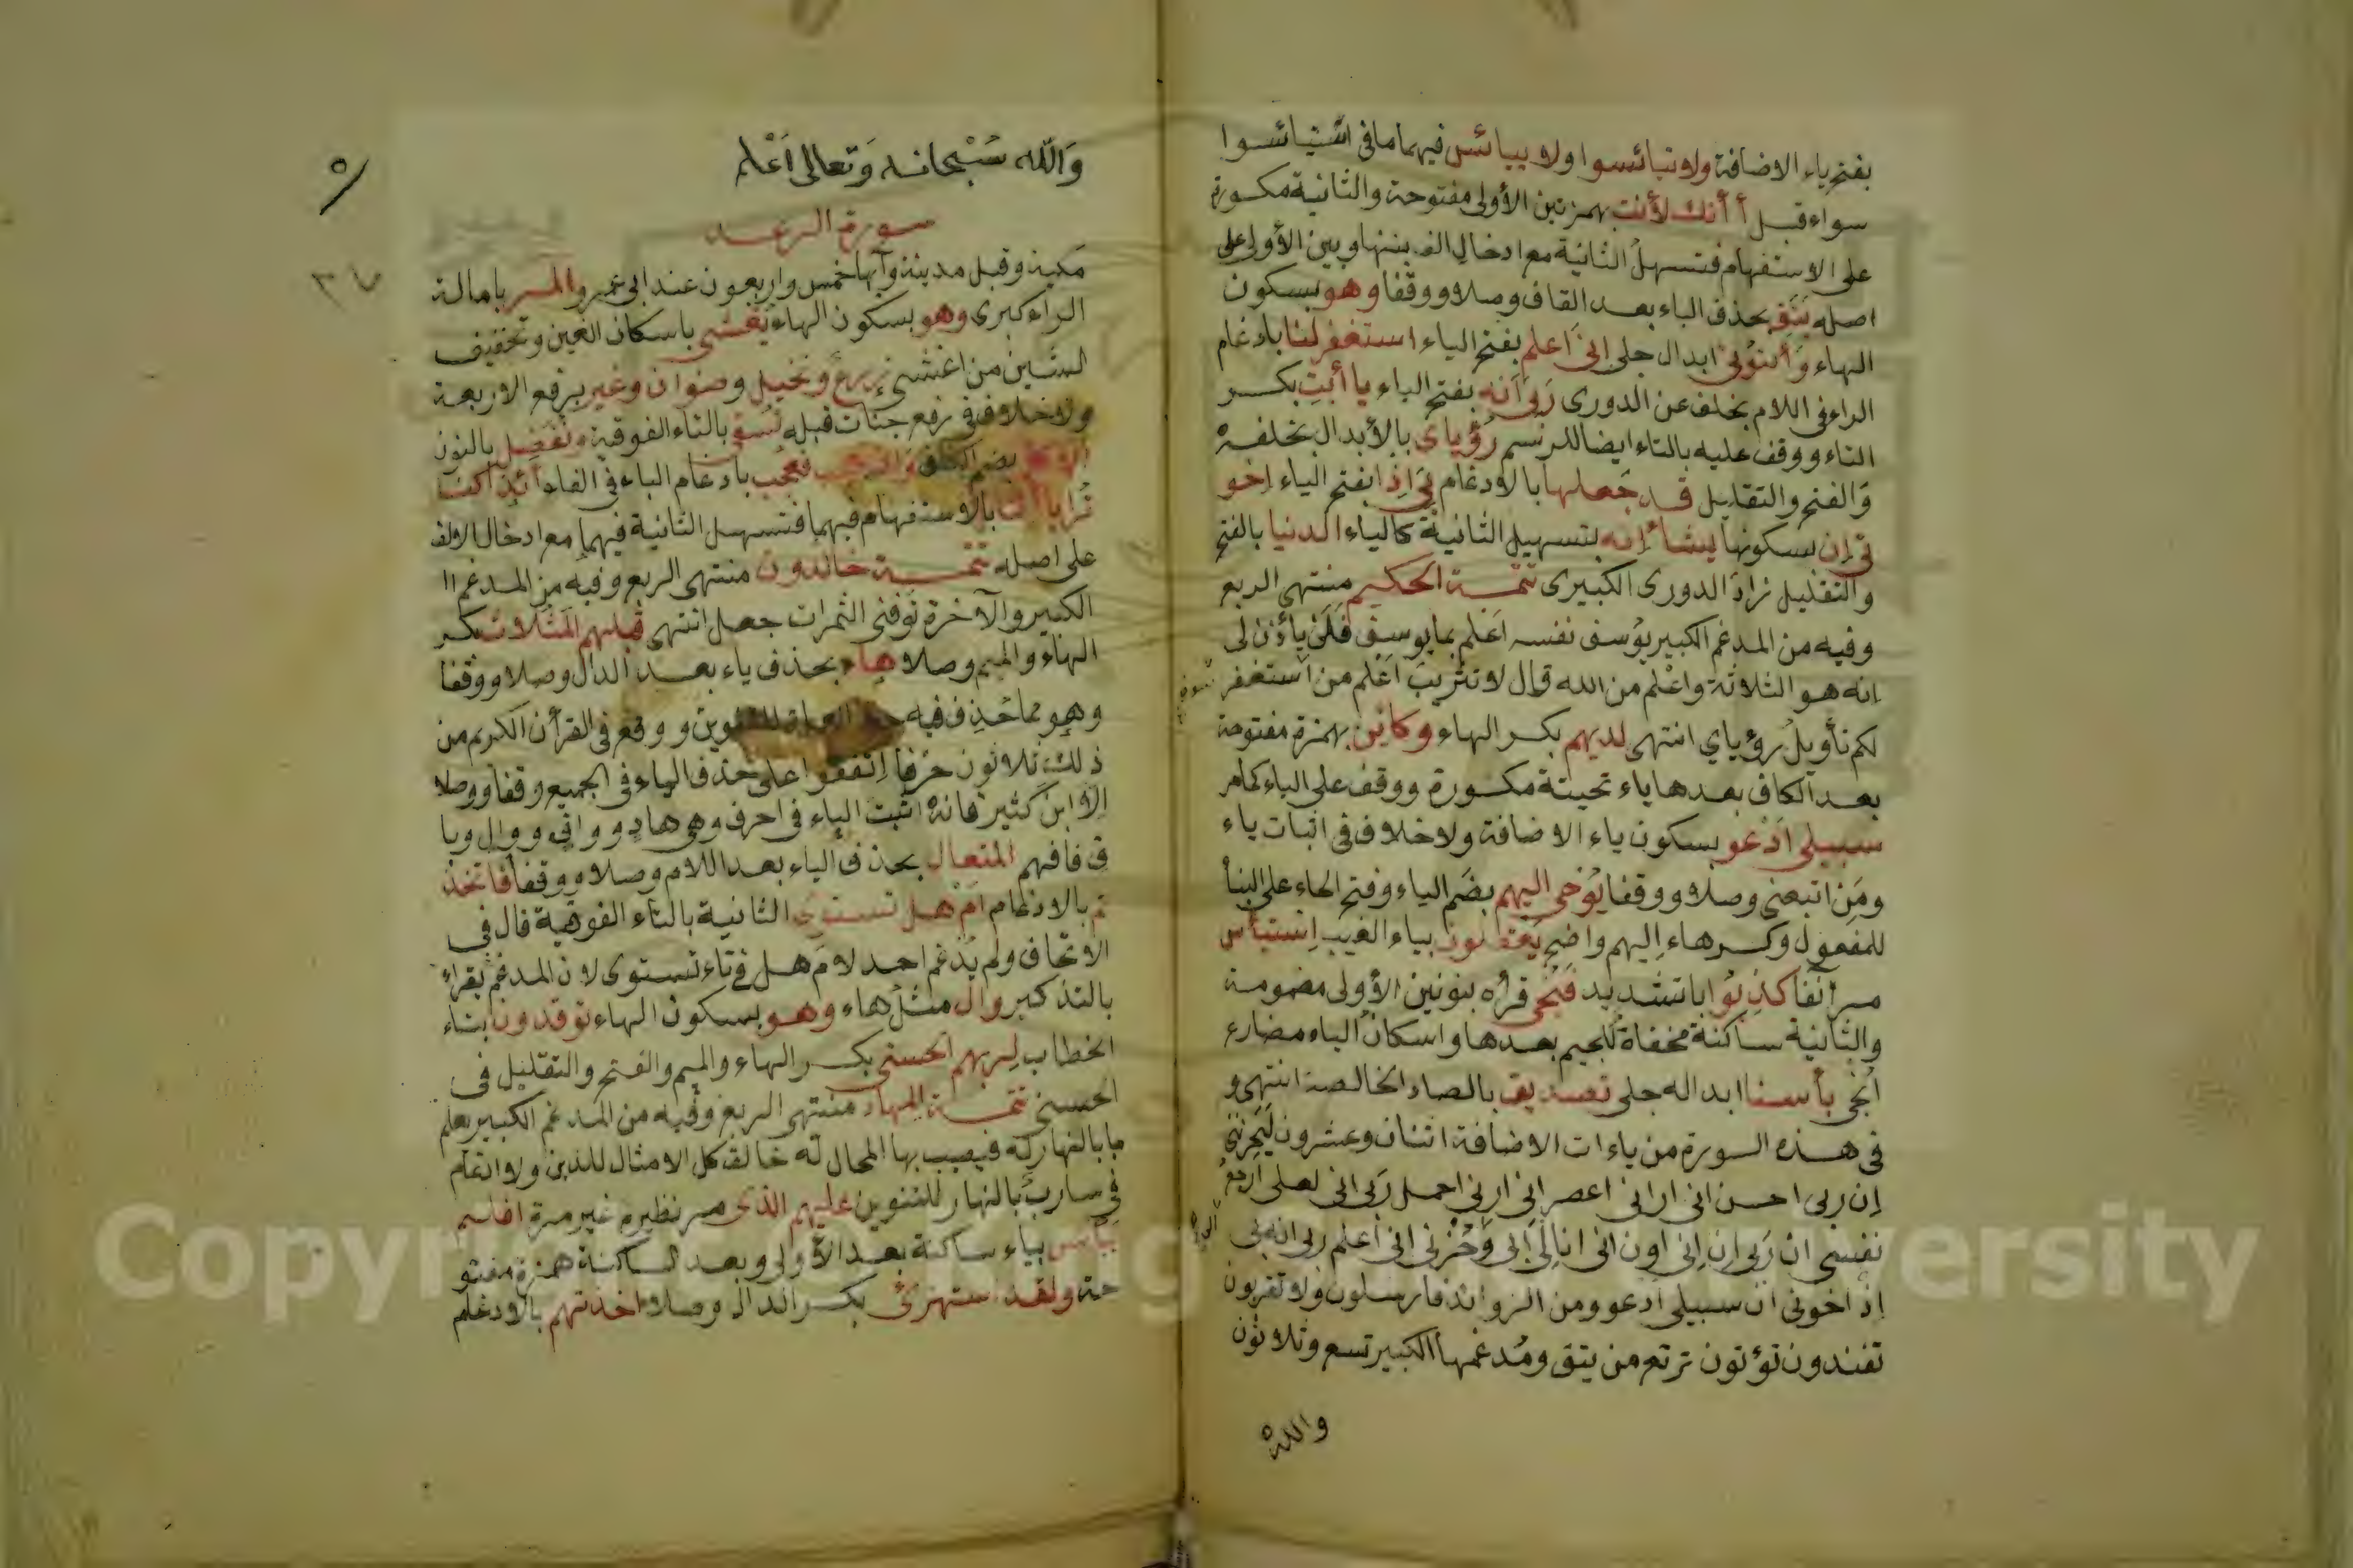 بفتح ياء الاضافة ولا تيائسوا ولا ييائس فيهما ما في استيائسوا
سواء قبل أأنك لأنت بهمزتين الأولى مفتوحة والثانية مكسورة
على الاستفهام فتسهل الثانية مع ادخال الف بينها وبين الأولى على
اصله يتق بحذف الياء بعد القاف وصلا ووقفا وهو بسكون
الهاء وأتوني ابدال جلي إني أعلم بفتح الياء استغفر لنا بادغام
الراء في اللام بخلف عن الدوري ربي انه بفتح الياء يا أبت بكسر
التاء ووقف عليه بالتاء ايضا للرسم رؤياي بالأبدال بخلفه
والفتح والتقليل قد جعلها بالادغام بي إذ بفتح الياء اخو
تي إن بسكونها يشاء إنه بتسهيل الثانية كالياء الدنيا بالفتح
والتقليل زاد الدوري الكبيرى تتمة الحكيم منتهى الربع
وفيه من المدغم الكبير يوسف نفسه اعلم بما يوسف فلن يأذن لي
انه هو الثلاثة واعلم من الله قال لا تثريب اعلم من استغفر
لكم تأويل رؤياي انتهى لديهم بكسر الهاء وكاين بهمزة مفتوحة
بعد الكاف بعدها ياء تحتية مكسورة ووقف على الياء كما مر
سبيلي أدعو بسكون ياء الاضافة ولا خلاف في اثبات ياء
ومن اتبعني وصلا ووقفا يوحى اليهم بضم الياء وفتح الحاء على البنا
للمفعول وكسر هاء إليهم واضح يعقلون بياء الغيب استيأس
مر آنفا كذبوا بتشديد فننجي قرأه بنونين الأولى مضمومة
والثانية ساكنة مخفاة للجيم بعدها واسكان الياء مضارع
انجى بأسنا ابداله جلي تصديق بالصاد الخالصة انتهى و
في هذه السورة من ياءات الاضافة اثنان وعشرون ليحزنني
إن ربي احسن اني اراني اعصر إني اراني احمل ربي اني لعلي ارجع
نفسي ان ربي إن إني اوف اني انا لي أبي وحزني اني اعلم ربي انه بي
إذ اخوتي ان سبيلي ادعو ومن الزوائد فارسلون ولا تقربون
تفندون تؤتون نرتع من يتق ومدغمها الكبير تسع وثلاثون
والله
والله سبحانه وتعالى أعلم
سورة الرعد
مكية وقيل مدينة وآيها خمس واربعون عند ابي عمرو المر بامالة
الراء كبرى وهو بسكون الهاء يغشي باسكان الغين وتخفيف
الشين من اغشى زرع ونخيل وصنوان وغير برفع الاربعة
ولا خلاف في رفع جنات قبله تسقى بالتاء الفوقية ونفضل بالنون
بضم الكاف تعجب فعجب بادغام الباء في الفاء أئذا كنا
ترابا أئنا بالاستفهام فيهما فتسهل الثانية فيهما مع ادخال الالف
على اصله تتمة خالدون منتهى الربع وفيه من المدغم ا
الكبير والآخرة توفني الثمرات جعل انتهى قبلهم المثلات بكسر
الهاء والميم وصلا هاد بحذف ياء بعد الدال وصلا ووقفا
وهو مما حذف فيه للتنوين ووقع في القرأن الكريم من
ذلك ثلاثون حرفا اتفقوا على حذف الياء في الجميع وقفا ووصلا
إلا ابن كثير فانه اثبت الياء في احرف وهي هاد وواقي ووال وبا
ق فافهم المتعال بحذف الياء بعد اللام وصلا ووقفا فاتخذ
تم بالادغام ام هل تستوى الثانية بالتاء الفوقية قال في
الاتحاف ولم يدغم احد لام هل في تاء تستوى لان المدغم يقراء
بالتذكير وال مثل هاء وهو بسكون الهاء توقدون بتاء
الخطاب لربهم الحسنى بكسر الهاء والميم والفتح والتقليل في
الحسنى تتمة المهاد منتهى الربع وفيه من المدغم الكبير يعلم
ما بالنهار له فيصيب بها المحال له خالق كل الامثال للذين ولا ادغام
في سارب بالنهار للتنوين عليهم الذى مر نظيره غير مرة افلم
ييأس بياء ساكنة بعد الأولى وبعد الساكنة همزة مفتو
حة ولقد استهزئ بكسر الدال وصلا اخذتهم بالادغام